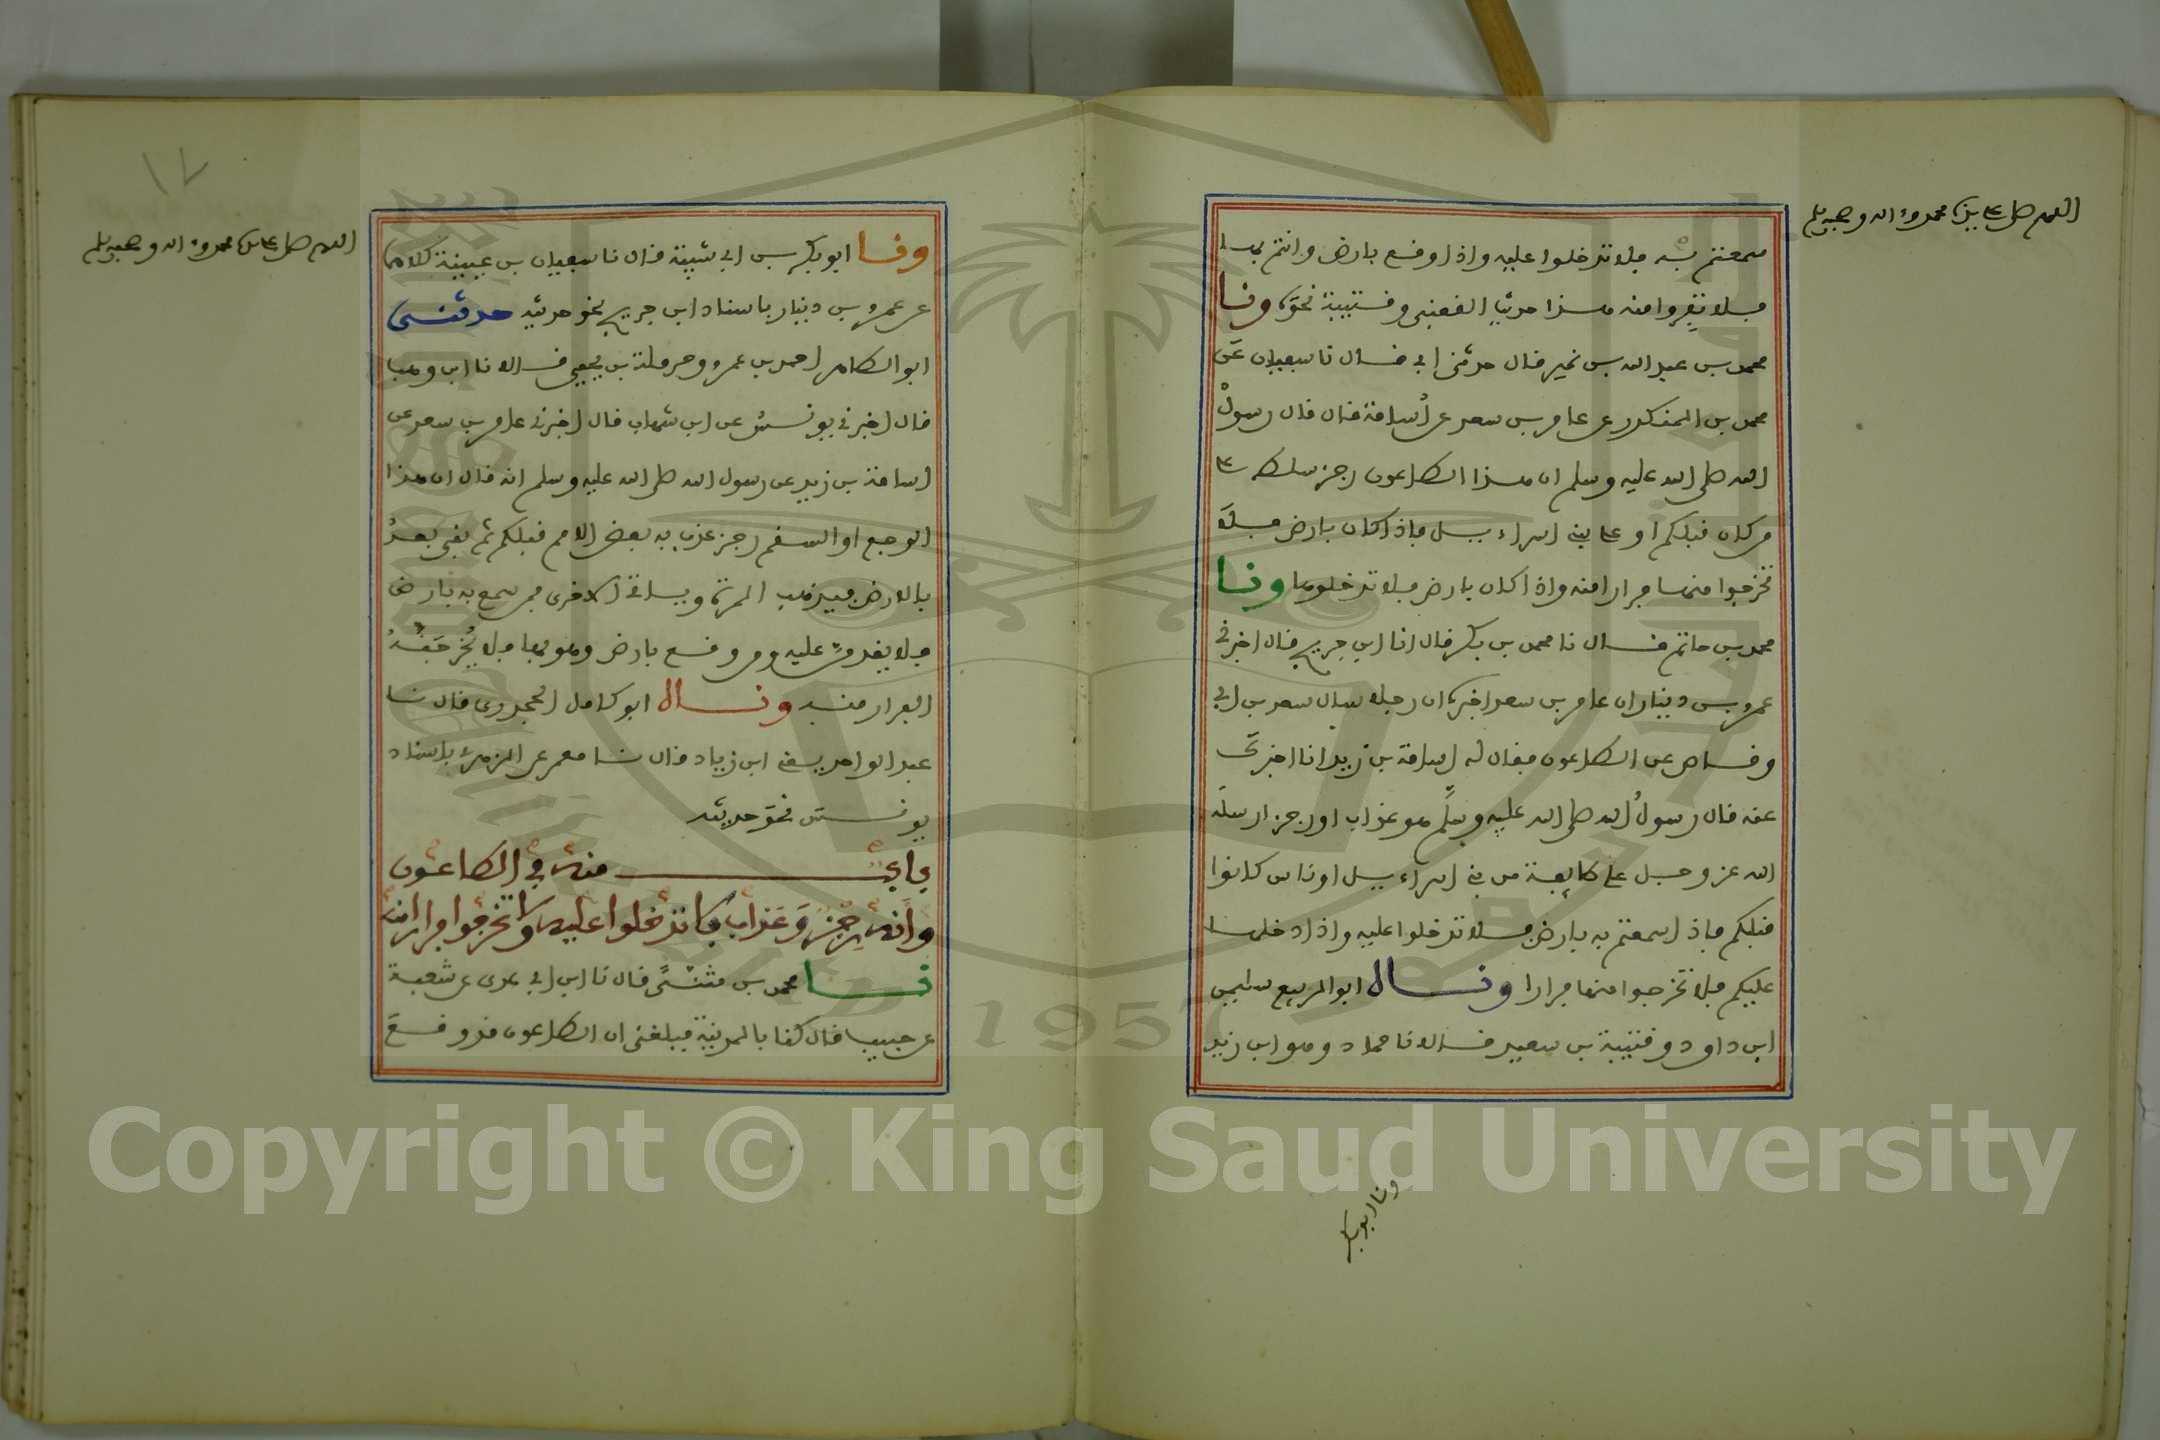 اللهم صل على سيدنا محمد وءاله وصحبه وسلم
سمعتم به فلا تدخلوا عليه واذا وقع بارض وانتم بها
فلا تفروا منه هذا حديث القعنبي وقتيبة نحوه ونا
محمد بن عبد الله بن نمير قال حدثني ابي قال نا سفيان عن
محمد بن المنكدر عن عامر بن سعد عن أسامة قال قال رسول
الله صلى الله عليه وسلم ان هذا الطاعون رجز سلط على
من كان قبلكم او على بني اسراءيل فاذا كان بارض فلا
تخرجوا منها فرارا منه واذا كان بارض فلا تدخلوها ونا
محمد بن حاتم قال نا محمد بن بكر قال انا ابن جريج قال اخبرني
عمرو بن دينار ان عامر بن سعد اخبره ان رجلا سال سعد بن ابي
وقاص عن الطاعون فقال له اسامة بن زيد انا اخبرك
عنه قال رسول الله صلى الله عليه وسلم هو عذاب او رجز ارسله
الله عز وجل على طايفة من بني اسراءيل او ناس كانوا
قبلكم فاذا سمعتم به بارض فلا تدخلوا عليه واذا دخلها
عليكم فلا تخرجوا منها فرارا ونا ابو الربيع سليمن
ابن داود وقتيبة بن سعيد قالا نا حماد وهو ابن زيد
ونا ابو بكر
١٧
اللهم صل على سيدنا محمد وءاله وصحبه وسلم
ونا ابو بكر بن ابي شيبة قال نا سفيان بن عيينة كلاهما
عن عمرو بن دينار باسناد ابن جريج نحو حديثه حدثني
ابو الطاهر احمد بن عمرو وحرملة بن يحيى قالا نا ابن وهب
قال اخبرني يونس عن ابن شهاب قال اخبرني عامر بن سعد عن
اسامة بن زيد عن رسول الله صلى الله عليه وسلم انه قال ان هذا
الوجع او السقم رجز عذب به بعض الامم قبلكم ثم بقي بعد
بالارض فيذهب المرة وياتي الاخرى فمن سمع به بارض
فلا يقدمن عليه ومن وقع بارض وهو بها فلا يخرجنه
الفرار منه ونا ابو كامل الجحدري قال نا
عبد الواحد يعني ابن زياد قال نا معمر عن الزهري باسناد
يونس نحو حديثه
باب منه في الطاعون
وأنه رجز وعذاب فلا تدخلوا عليه ولا تخرجوا فرارا منه
نا محمد بن مثنى قال نا ابن ابي عدي عن شعبة
عن حبيب قال كنا بالمدينة فبلغني ان الطاعون قد وقع
1957
Copyright © King Saud University